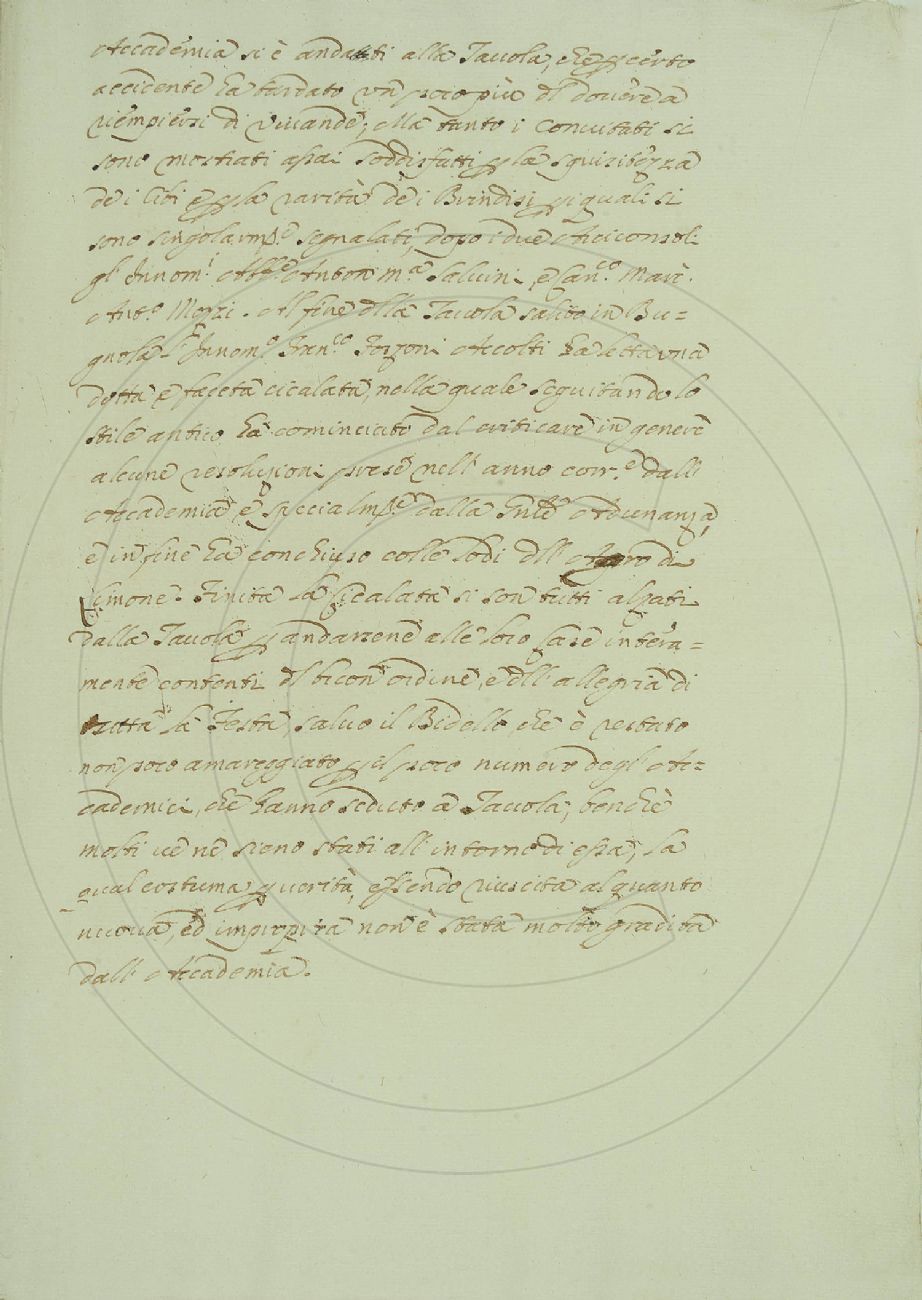 Accademia si è andati alla Tavola, che p certo
accidente ha tardato un poco più dl dovere a
riempiersi di vivande; Ma tanto i Convitati si
sono mostrati assai soddisfatti p la squisitezza
de i Cibi e p la rarità de i Brindisi p i quali si
sono singolarmte segnalati, dopo i due Arciconsoli
gl' Innomi Abbe Anton Ma Salvini, e Canco Marc'
Anto Mozzi. Al fine dlla Tavola salito in Bu=
gnola l' Innomo Franco Forzoni Accolti ha letta una
dotta e faceta cicalata, nella quale seguitando lo
stile antico, ha cominciato dal criticare in genere
alcune resoluzioni prese nell' anno corre dall'
Accademia e specialmte dalla Adunanza,
e in fine ha conchiuso colle lodi dll' Agro di
Limone. Finita la Cicalata si son tutti alzati
dalla Tavola p andarsene alle loro Case intera=
mente contenti dl buon ordine, e dll' allegria di
tutta la Festa, salvo il Bidello, che è restato
non poco amareggiato p il poco numero degl' Ac=
cademici, che hanno seduto a Tavola; benchè
molti ve ne sieno stati all' intorno di essa; la
qual costuma p verità, essendo riuscita alquanto
nuova, ed impropria non è stata molto gradita
dall' Accademia.